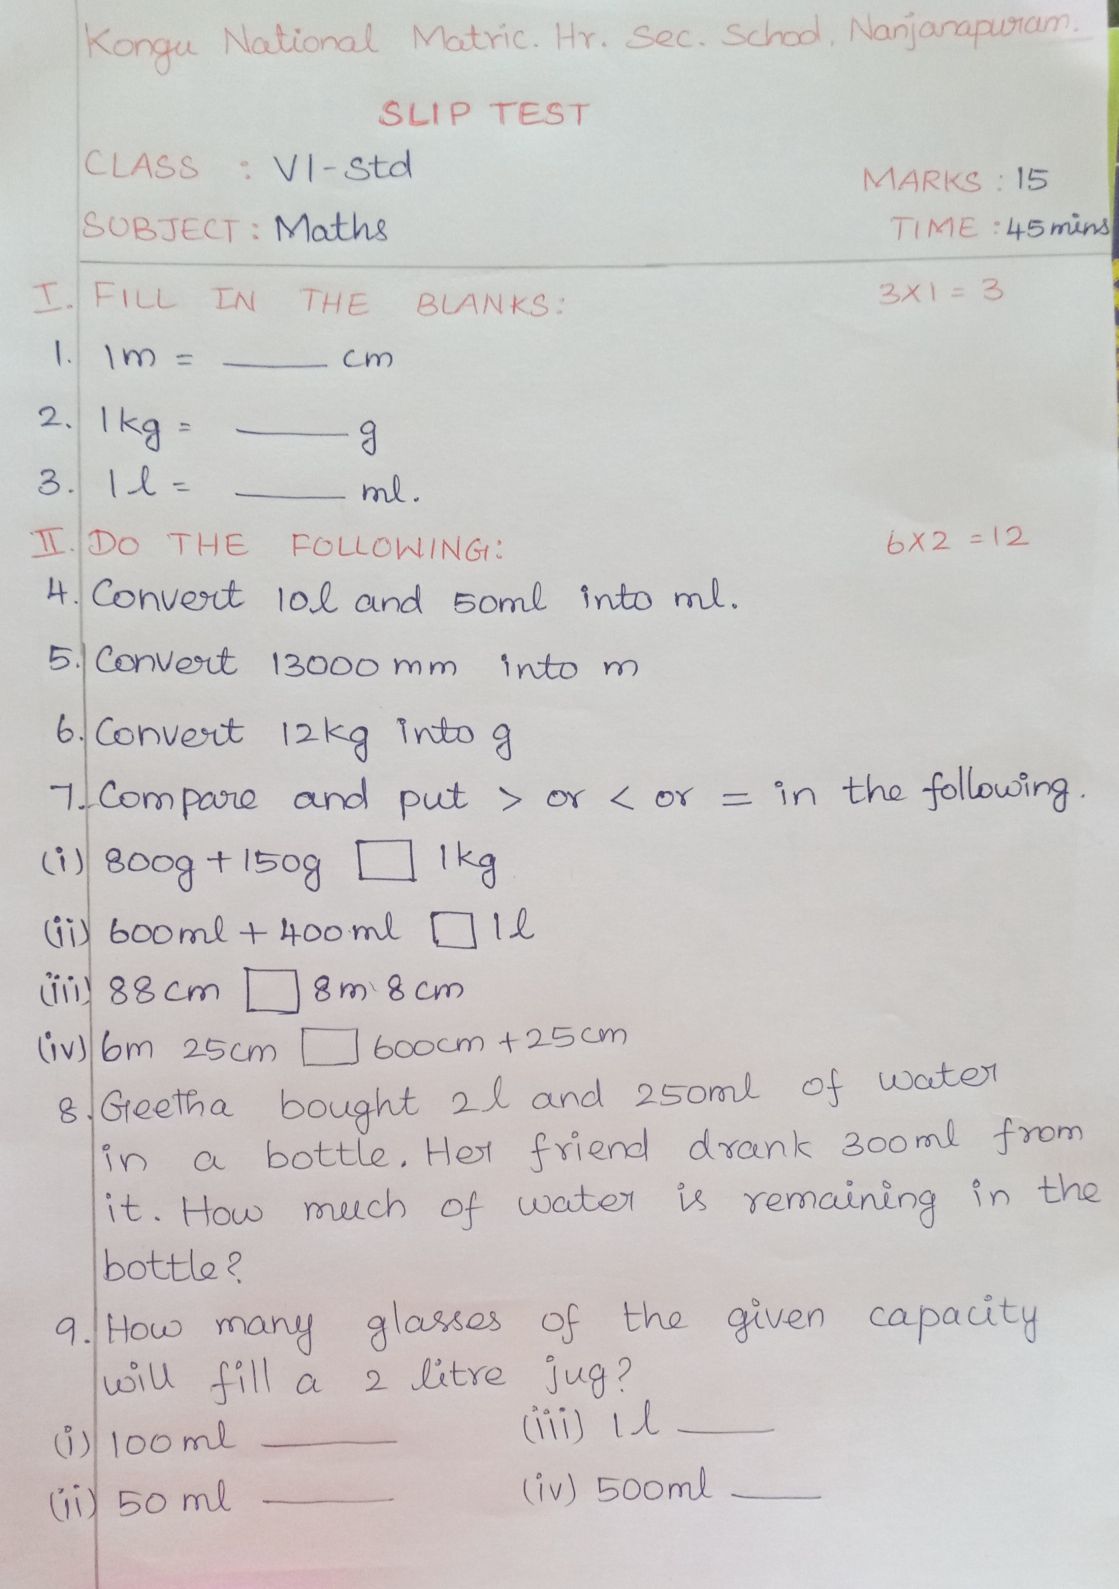 Kongu National Matric. Hr. Sec. School, Nanjanapuram.
SLIP TEST
CLASS : VI-Std
MARKS : 15
SUBJECT : Maths
TIME : 45mins
I. FILL IN THE BLANKS: 3x1 = 3
1. 1m = _____ cm
2. 1kg = _____ g
3. 1l = _____ ml.
II. DO THE FOLLOWING: 6x2 = 12
4. Convert 10l and 50ml into ml.
5. Convert 13000 mm into m
6. Convert 12kg into g
7. Compare and put > or < or = in the following.
(i) 800g + 150g □ 1kg
(ii) 600ml + 400ml □ 1l
(iii) 88cm □ 8m 8cm
(iv) 6m 25cm □ 600cm + 25cm
8. Geetha bought 2l and 250ml of water
in a bottle. Her friend drank 300ml from
it. How much of water is remaining in the
bottle?
9. How many glasses of the given capacity
will fill a 2 litre jug?
(i) 100ml _____ (iii) 1l _____
(ii) 50 ml _____ (iv) 500ml _____